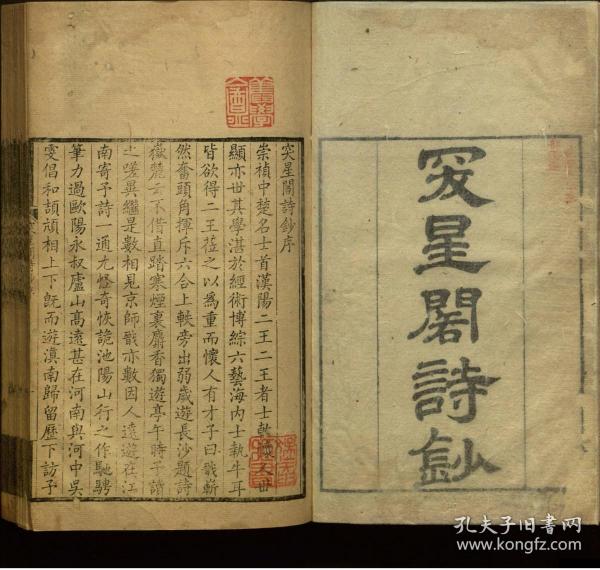 突星閣詩鈔
突星閣詩鈔序
崇禎中楚名士首漢陽二王二王者士乾
顯亦世其學湛於經術博綜六藝海內士執牛耳
皆欲得二王蒞之以爲重而懷人有才子曰戩嶄
然奮頭角揮斥六合上軼旁出弱歲遊長沙題詩
嶽麓云不借直踏寒煙裏麝香獨遊亭午時予讀
之嗟異繼是數相見京師戩亦數因人遠遊在江
南寄予詩一通尤怪奇恢詭池陽山行之作馳騁
筆力過歐陽永叔廬山高遠甚在河南與河中吳
雯倡和頡頏相上下既而遊滇南歸留歷下訪予
孔夫子旧书网
www.kongfz.com